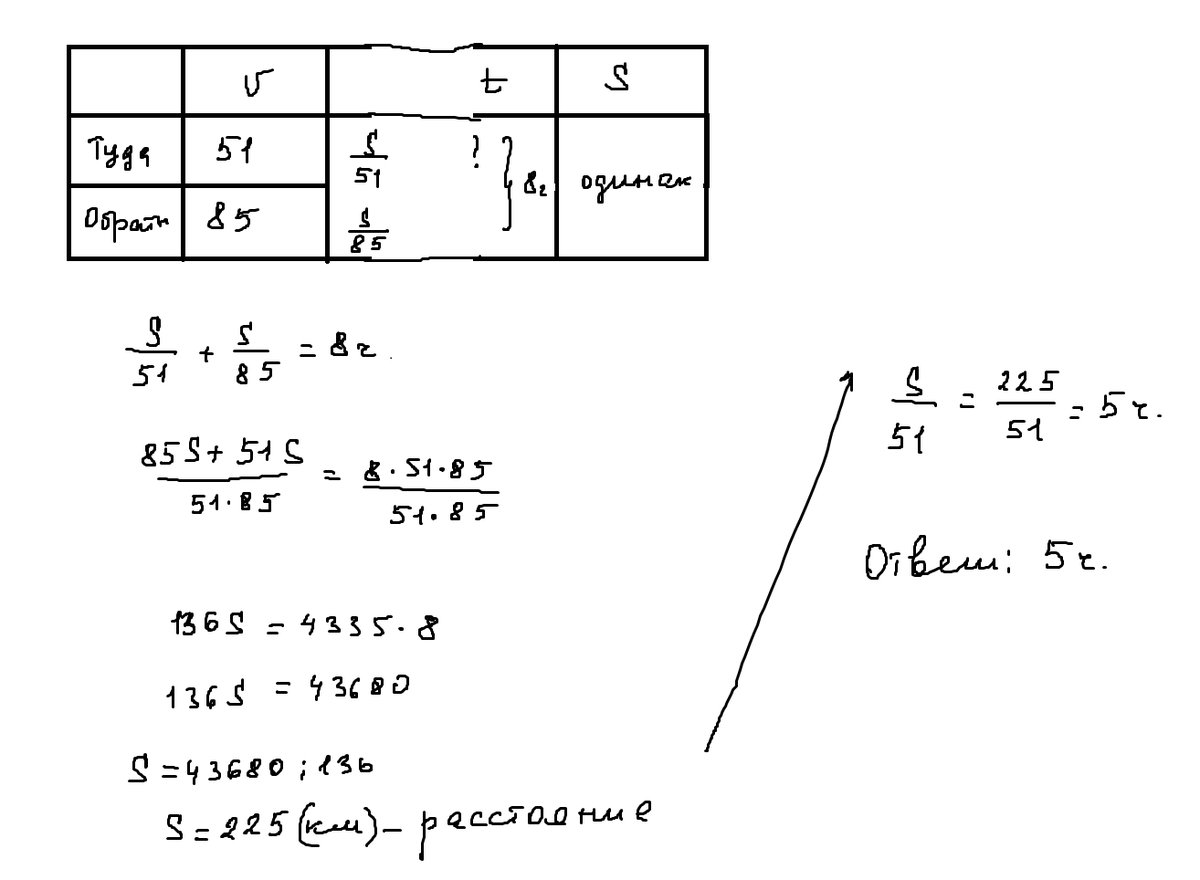 v t S
Туда 51 S/51 ? } 8ч одинак
Обратн 85 S/85
S/51 + S/85 = 8ч.
(85S + 51S)/(51·85) = (8·51·85)/(51·85)
136S = 4335·8
136S = 43680
S = 43680 : 136
S = 225 (км) – расстояние
S/51 = 225/51 = 5ч.
Ответ: 5ч.